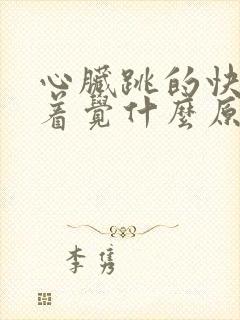 心臟跳的快
着覺什麼原
李隽